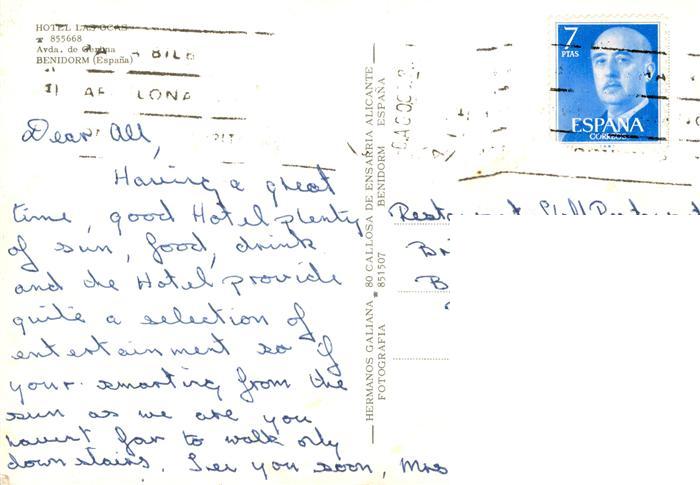 HOTEL LAS OCAS
☎ 855668
Avda. de Gerona
BENIDORM (España)
7
PTAS
ESPAÑA
CORREOS
Dear All,
Having a great
time, good Hotel plenty
of sun, food, drink
and the Hotel provide
quite a selection of
entertainment so if
your smarting from the
sun as we are you
havent far to walk only
down stairs. See you soon, Mrs
HERMANOS GALIANA ☎ 80 CALLOSA DE ENSARRIA ALICANTE
FOTOGRAFIA 851507 BENIDORM ESPAÑA